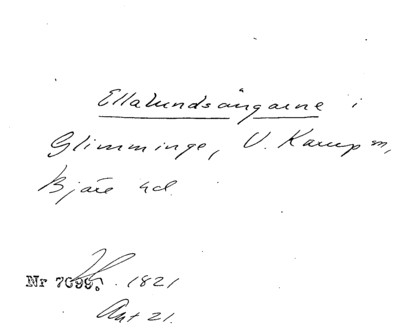 Ellalundsängarne i
Glimminge, V. Karup sn,
Bjäre hd.
Nr 7099. 1821
Akt 21.